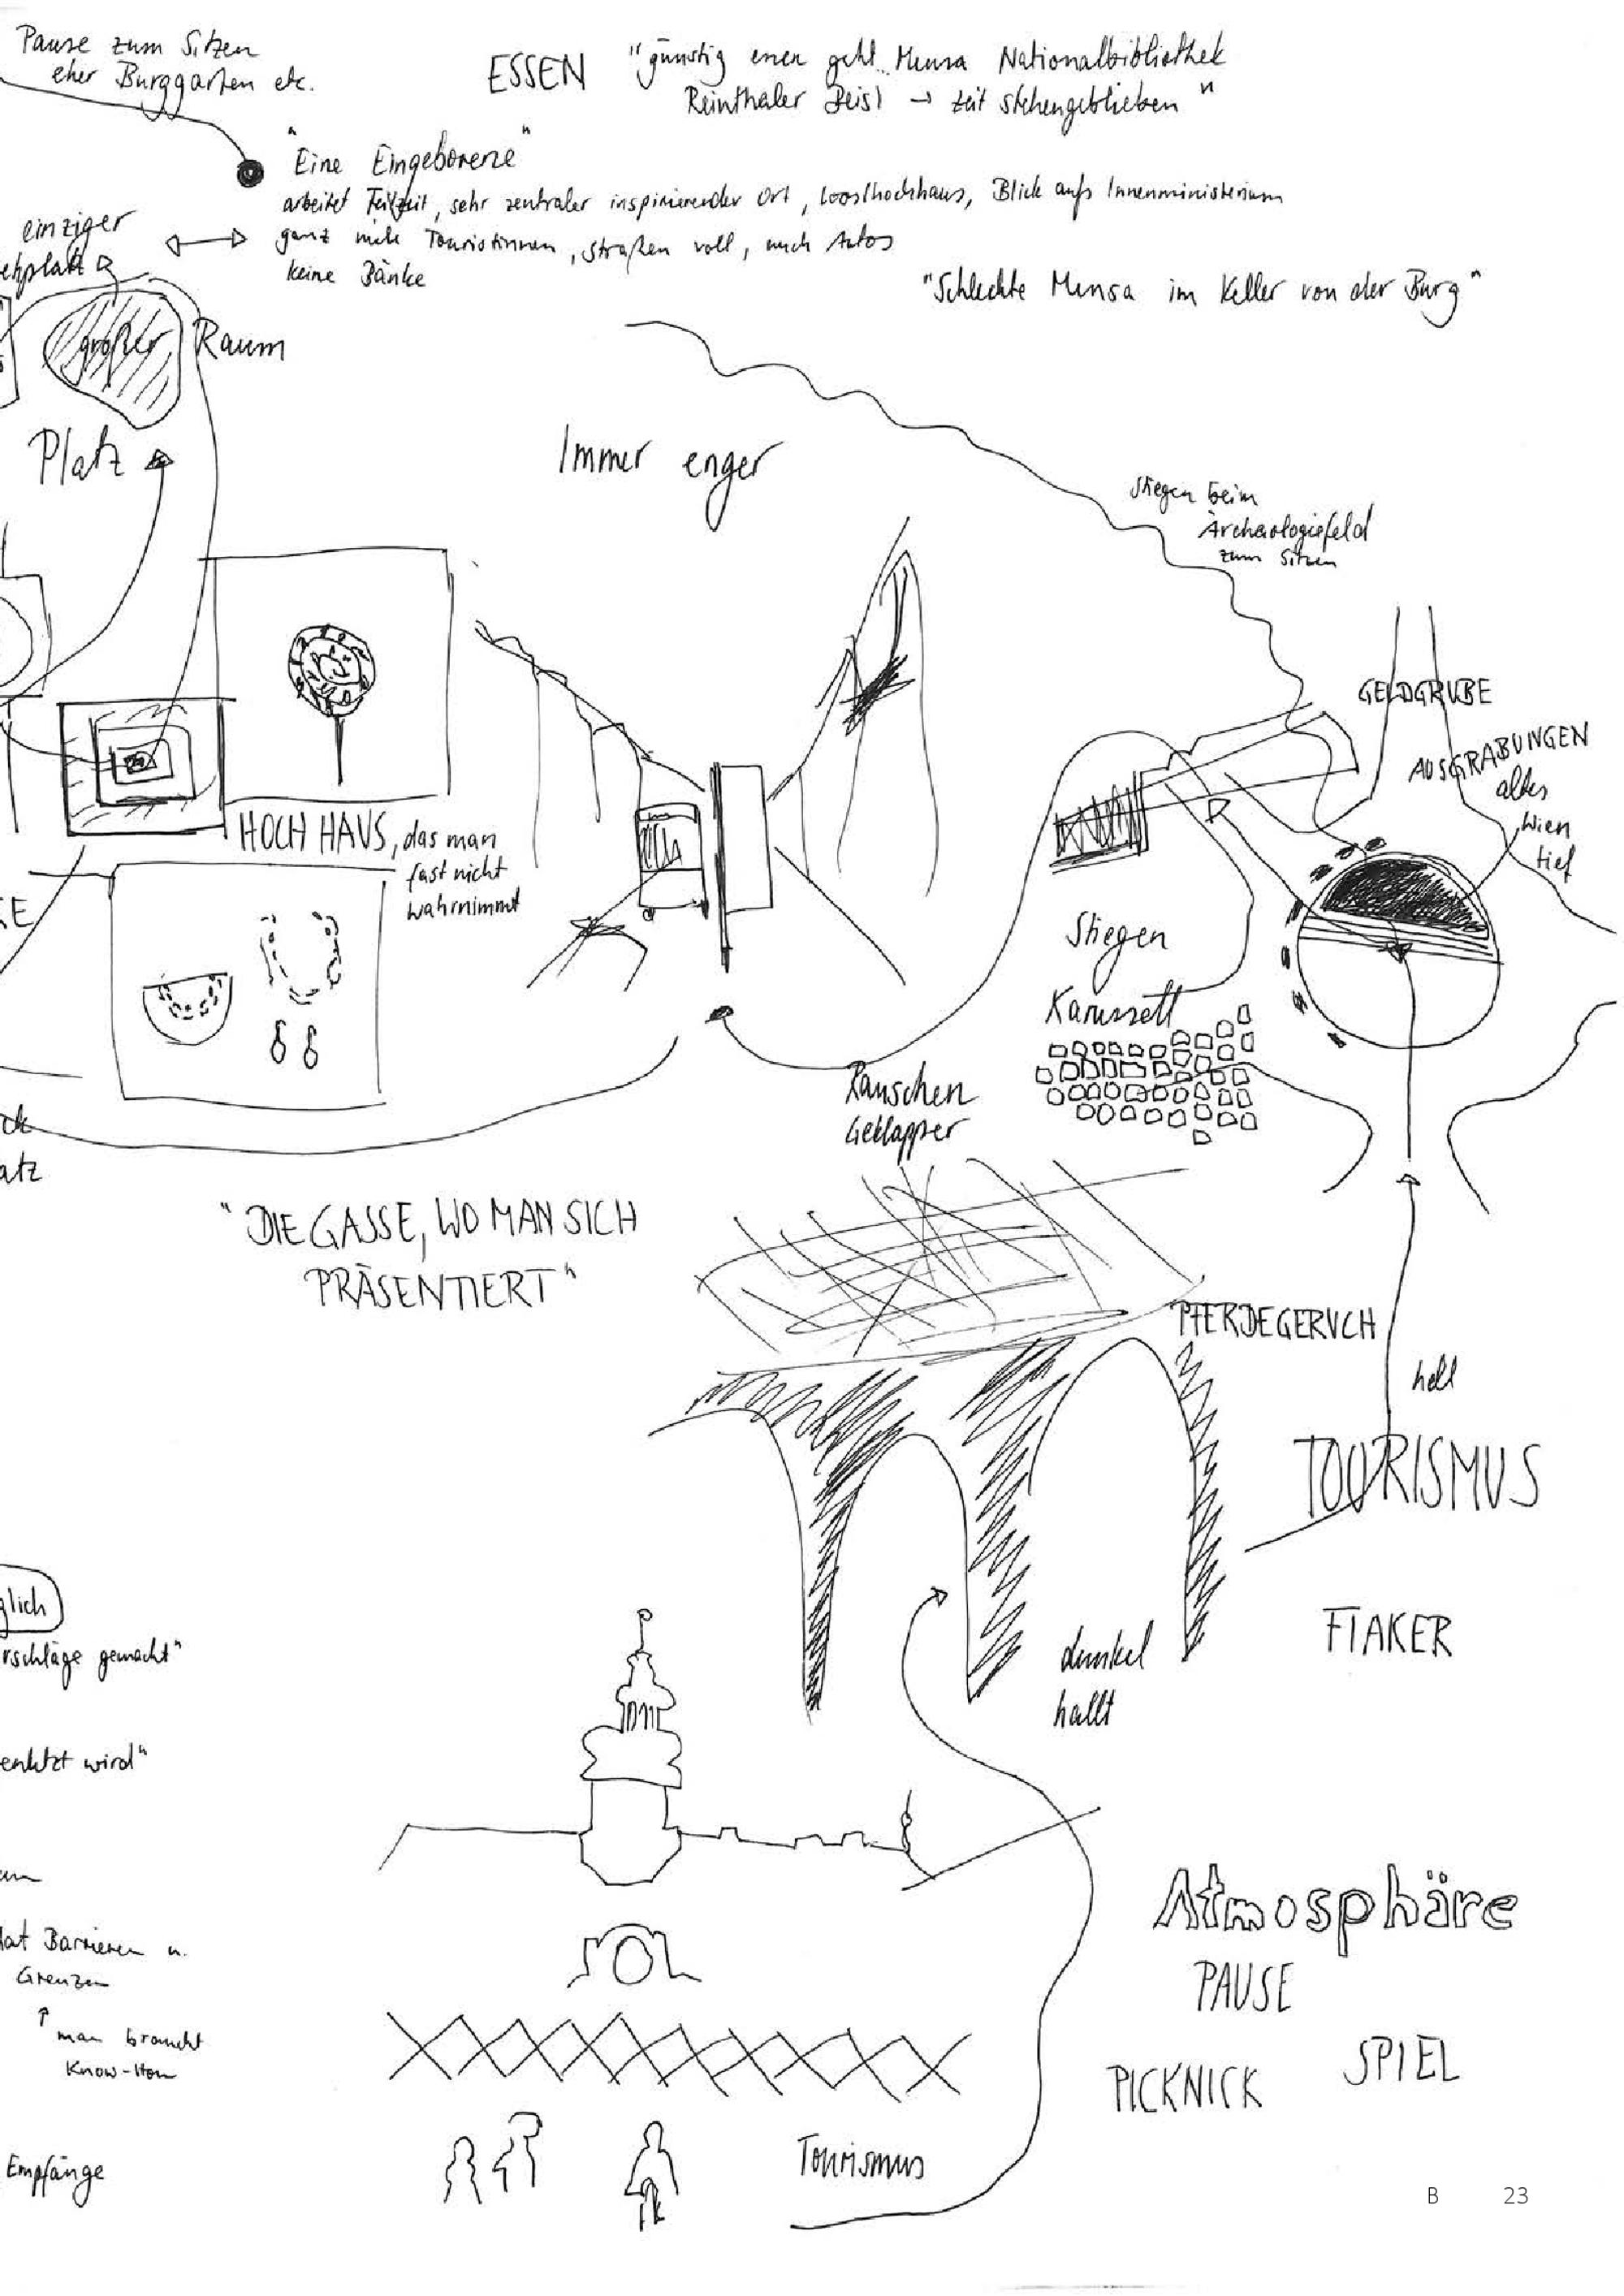 Pause zum Sitzen
eher Burggarten etc.
ESSEN
"günstig essen geht Mensa Nationalbibliothek
Reinthaler Beisl → Zeit stehengeblieben"
"Eine Eingeborene"
arbeitet Teilzeit, sehr zentraler inspirierender Ort, Looslhochhaus, Blick aufs Innenministerium
ganz viele Touristinnen, Straßen voll, auch Autos
keine Bänke
einziger
"Schlechte Mensa im Keller von der Burg"
großer Raum
Platz
Immer enger
Stiegen beim
Archäologiefeld
zum Sitzen
GELDGRUBE
AUSGRABUNGEN
altes
Wien
tief
HOCHHAUS, das man
fast nicht
wahrnimmt
Stiegen
Karussell
Rauschen
Geklapper
atz
"DIE GASSE, WO MAN SICH
PRÄSENTIERT"
PFERDEGERUCH
hell
TOURISMUS
FIAKER
dunkel
hallt
glich
rschläge gemacht"
wird"
Atmosphäre
PAUSE
SPIEL
PICKNICK
hat Barrieren u.
Grenzen
↑
man braucht
Know-How
Empfänge
Tourismus
B 23